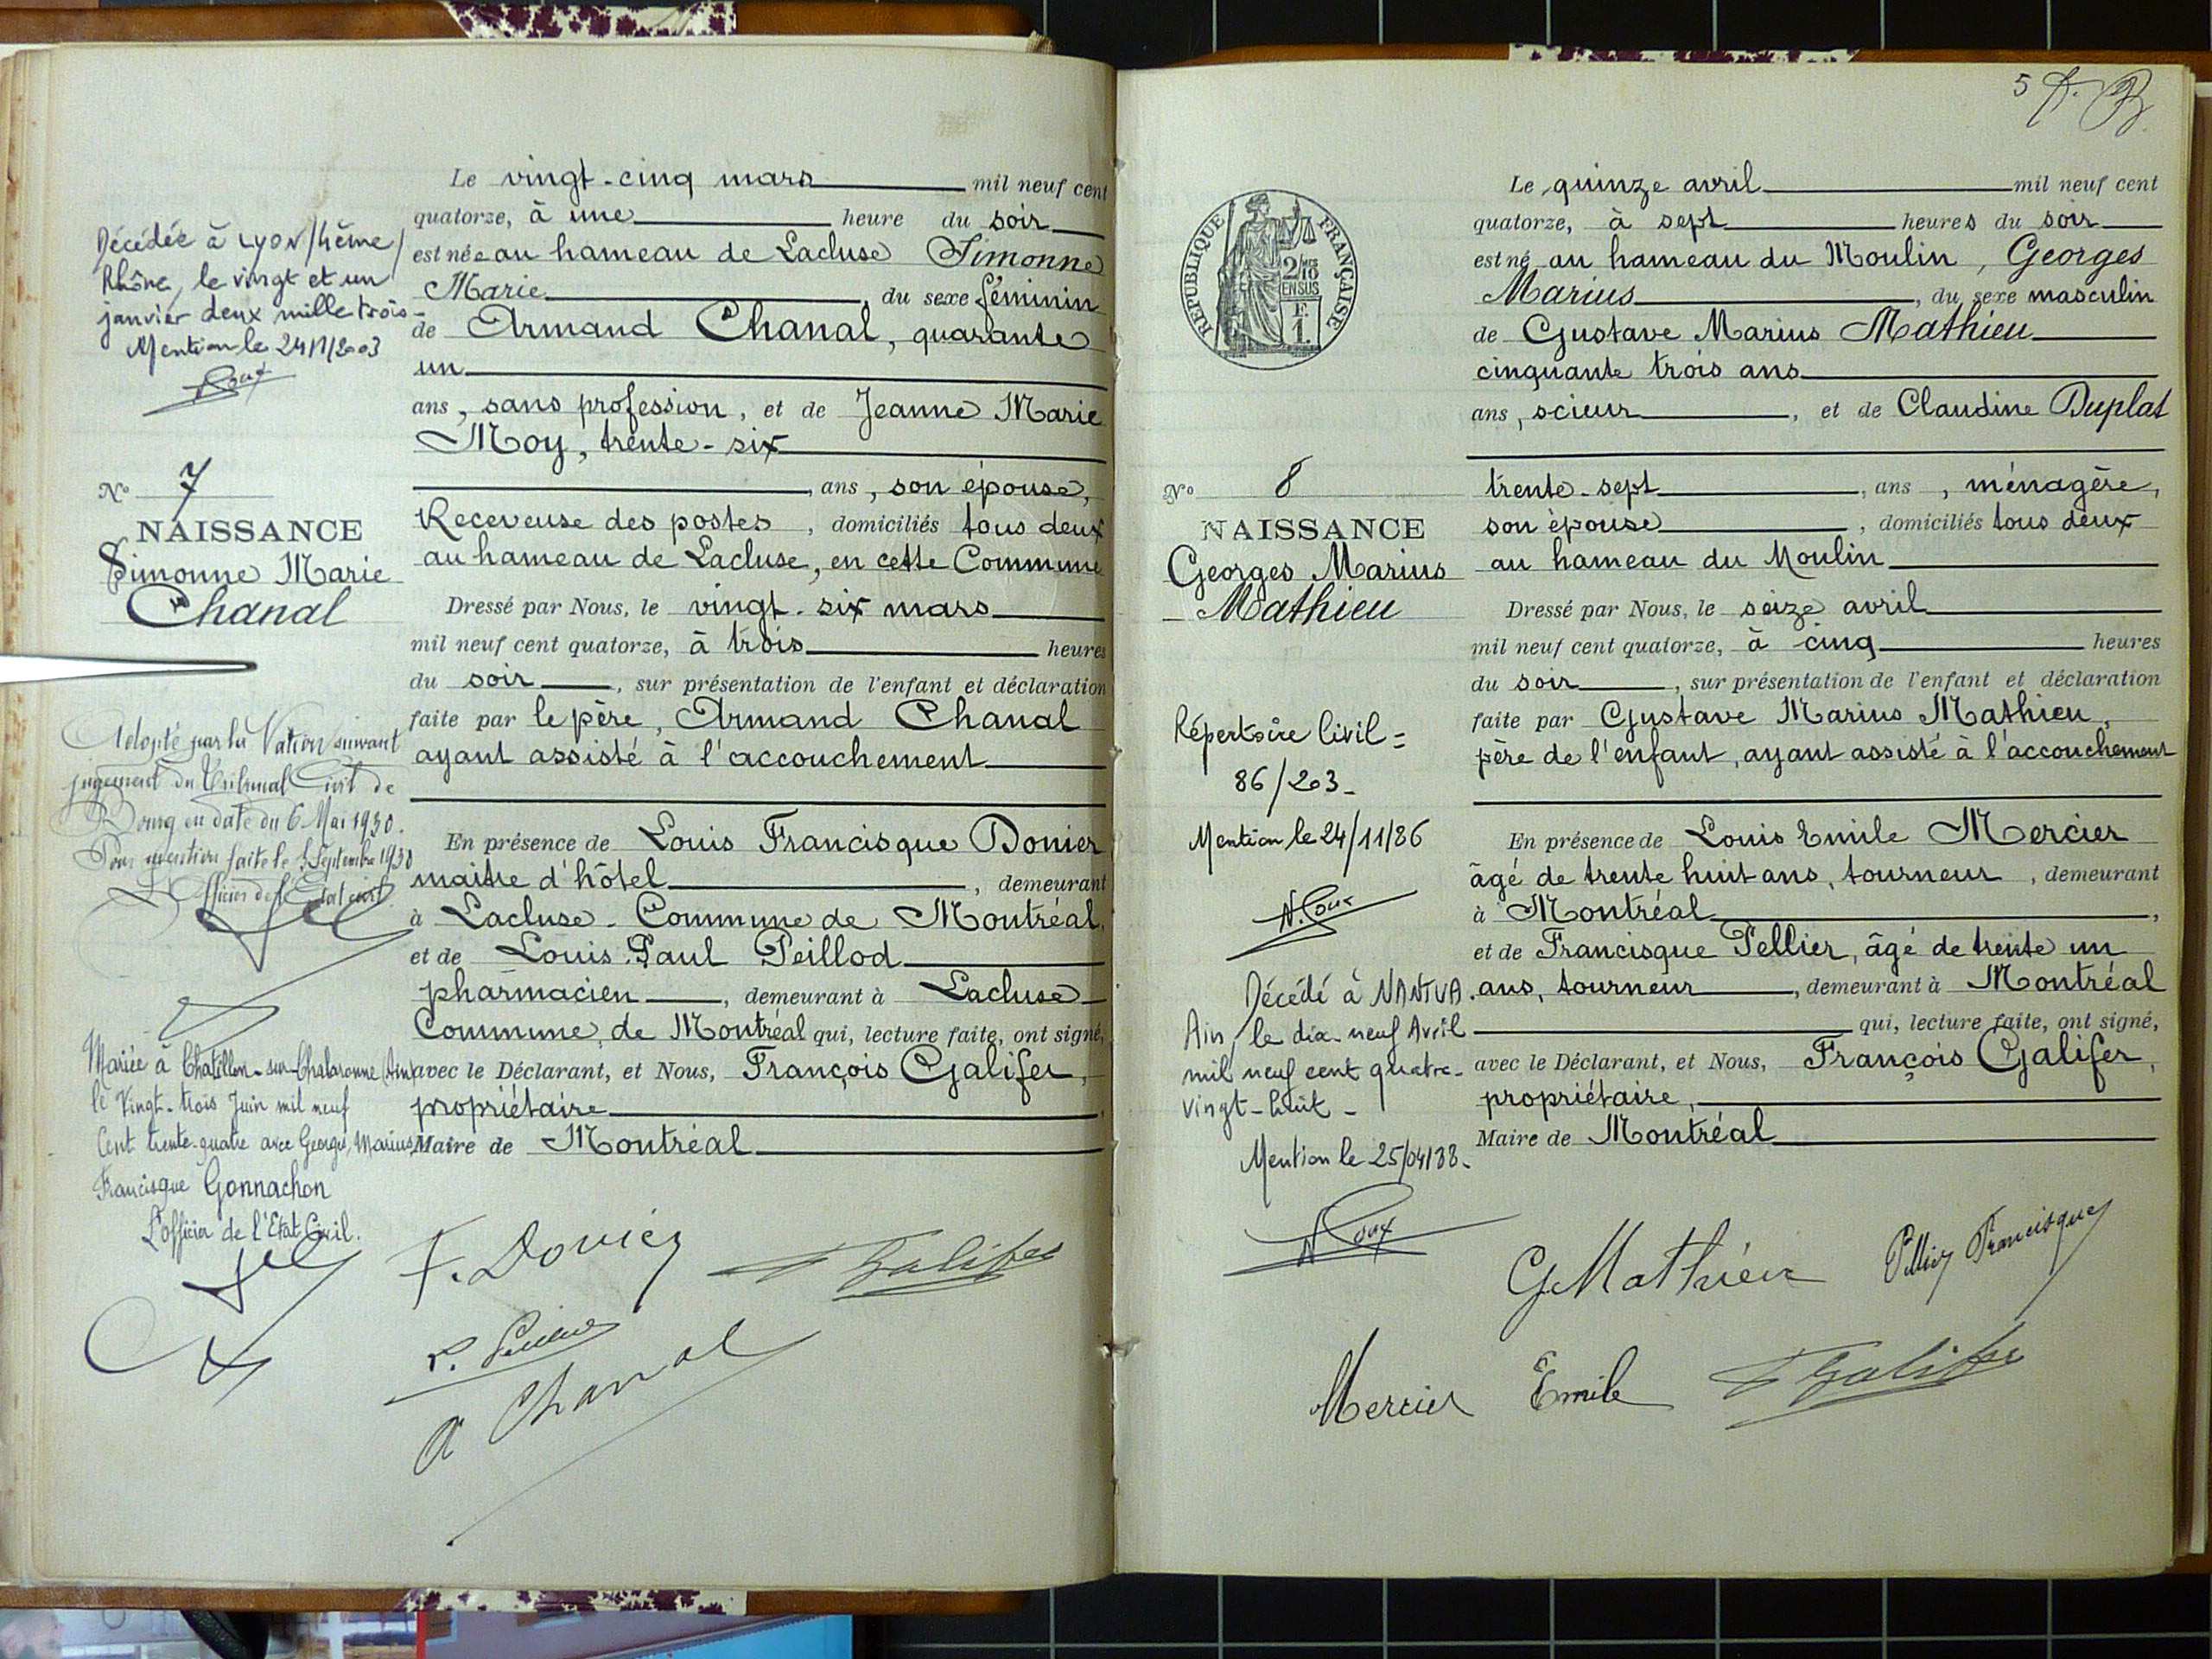 Le vingt-cinq mars mil neuf cent
quatorze, à une heure du soir
est née au hameau de Lacluse Simonne
Marie, du sexe féminin
de Armand Chanal, quarante
un
ans, sans profession, et de Jeanne Marie
Moy, trente-six
, ans, son épouse,
Receveuse des postes, domiciliés tous deux
au hameau de Lacluse, en cette Commune
Dressé par Nous, le vingt-six mars
mil neuf cent quatorze, à trois heures
du soir, sur présentation de l'enfant et déclaration
faite par le père, Armand Chanal
ayant assisté à l'accouchement
En présence de Louis Francisque Donier
maitre d'hôtel, demeurant
à Lacluse - Commune de Montréal,
et de Louis Paul Peillod
pharmacien, demeurant à Lacluse
Commune de Montréal qui, lecture faite, ont signé,
avec le Déclarant, et Nous, François Galifer,
propriétaire,
Maire de Montréal
F. Donier
Galifer
P. Peillod
A Chanal
Décédée à LYON/4ème/
Rhône, le vingt et un
janvier deux mille trois-
Mention le 24/1/2003
Roux
N° 7
NAISSANCE
Simonne Marie
Chanal
Adopté par la Nation suivant
jugement du Tribunal Civil de
Bourg en date du 6 Mai 1930.
Pour mention faite le Septembre 1930
L'Officier de l'Etat civil
Mariée à Chatillon-sur-Chalaronne (Ain)
le Vingt-trois Juin mil neuf
Cent trente-quatre avec Georges, Marius,
Francisque Gonnachon
L'officier de l'Etat Civil.
5
RÉPUBLIQUE FRANÇAISE
2/10
EN SUS
F.
1.
Le quinze avril mil neuf cent
quatorze, à sept heures du soir
est né au hameau du Moulin, Georges
Marius, du sexe masculin
de Gustave Marius Mathieu
cinquante trois ans
ans, scieur, et de Claudine Duplat
trente-sept, ans, ménagère,
son épouse, domiciliés tous deux
au hameau du Moulin
Dressé par Nous, le seize avril
mil neuf cent quatorze, à cinq heures
du soir, sur présentation de l'enfant et déclaration
faite par Gustave Marius Mathieu,
père de l'enfant, ayant assisté à l'accouchement
En présence de Louis Emile Mercier
âgé de trente huit ans, tourneur, demeurant
à Montréal,
et de Francisque Pellier, âgé de trente un
ans, tourneur, demeurant à Montréal
qui, lecture faite, ont signé,
avec le Déclarant, et Nous, François Galifer,
propriétaire,
Maire de Montréal
G Mathieu
Pellier Francisque
Mercier Emile
Galifer
N° 8
NAISSANCE
Georges Marius
Mathieu
Répertoire Civil =
86/203-
Mention le 24/11/86
N. Roux
Décédé à NANTUA.
Ain, le dix-neuf Avril
mil neuf cent quatre-
vingt-huit -
Mention le 25/04/88-
N Roux